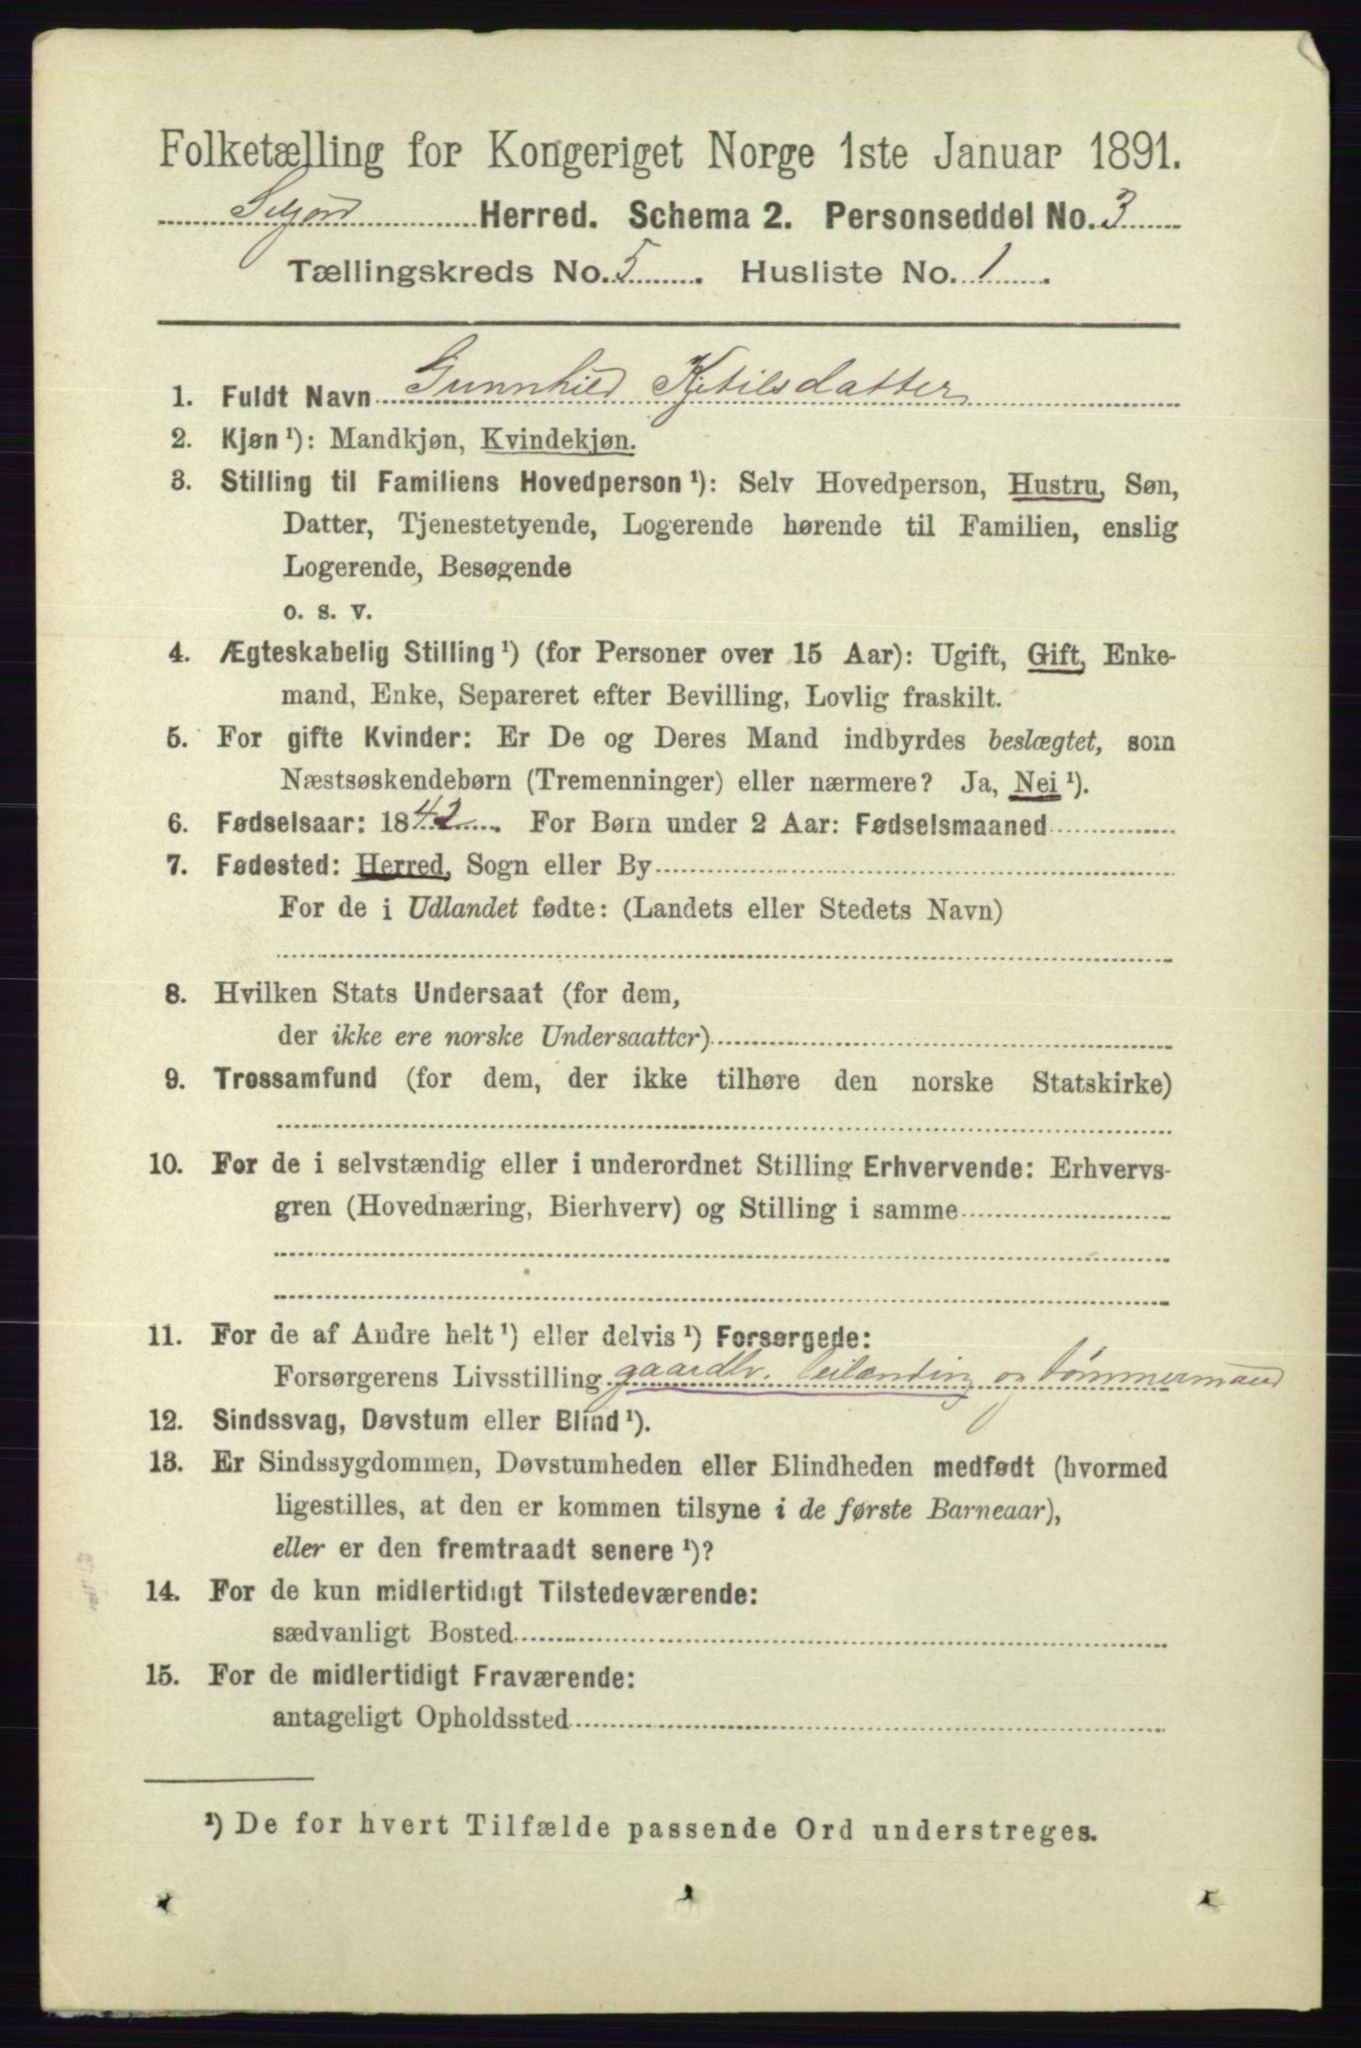 Folketælling for Kongeriget Norge 1ste Januar 1891.
Seljord Herred. Schema 2. Personseddel No. 3
Tællingskreds No. 5. Husliste No. 1.
1. Fuldt Navn Gunnhild Kjetilsdatter
2. Kjøn ¹): Mandkjøn, Kvindekjøn.
3. Stilling til Familiens Hovedperson ¹): Selv Hovedperson, Hustru, Søn,
Datter, Tjenestetyende, Logerende hørende til Familien, enslig
Logerende, Besøgende
o. s. v.
4. Ægteskabelig Stilling ¹) (for Personer over 15 Aar): Ugift, Gift, Enke-
mand, Enke, Separeret efter Bevilling, Lovlig fraskilt.
5. For gifte Kvinder: Er De og Deres Mand indbyrdes beslægtet, som
Næstsøskendebørn (Tremenninger) eller nærmere? Ja, Nei ¹).
6. Fødselsaar: 1842. For Børn under 2 Aar: Fødselsmaaned
7. Fødested: Herred, Sogn eller By
For de i Udlandet fødte: (Landets eller Stedets Navn)
8. Hvilken Stats Undersaat (for dem,
der ikke ere norske Undersaatter)
9. Trossamfund (for dem, der ikke tilhøre den norske Statskirke)
10. For de i selvstændig eller i underordnet Stilling Erhvervende: Erhvervs-
gren (Hovednæring, Bierhverv) og Stilling i samme
11. For de af Andre helt ¹) eller delvis ¹) Forsørgede:
Forsørgerens Livsstilling gaardbr. leilending og tømmermand
12. Sindssvag, Døvstum eller Blind ¹).
13. Er Sindssygdommen, Døvstumheden eller Blindheden medfødt (hvormed
ligestilles, at den er kommen tilsyne i de første Barneaar),
eller er den fremtraadt senere ¹)?
14. For de kun midlertidigt Tilstedeværende:
sædvanligt Bosted
15. For de midlertidigt Fraværende:
antageligt Opholdssted
¹) De for hvert Tilfælde passende Ord understreges.